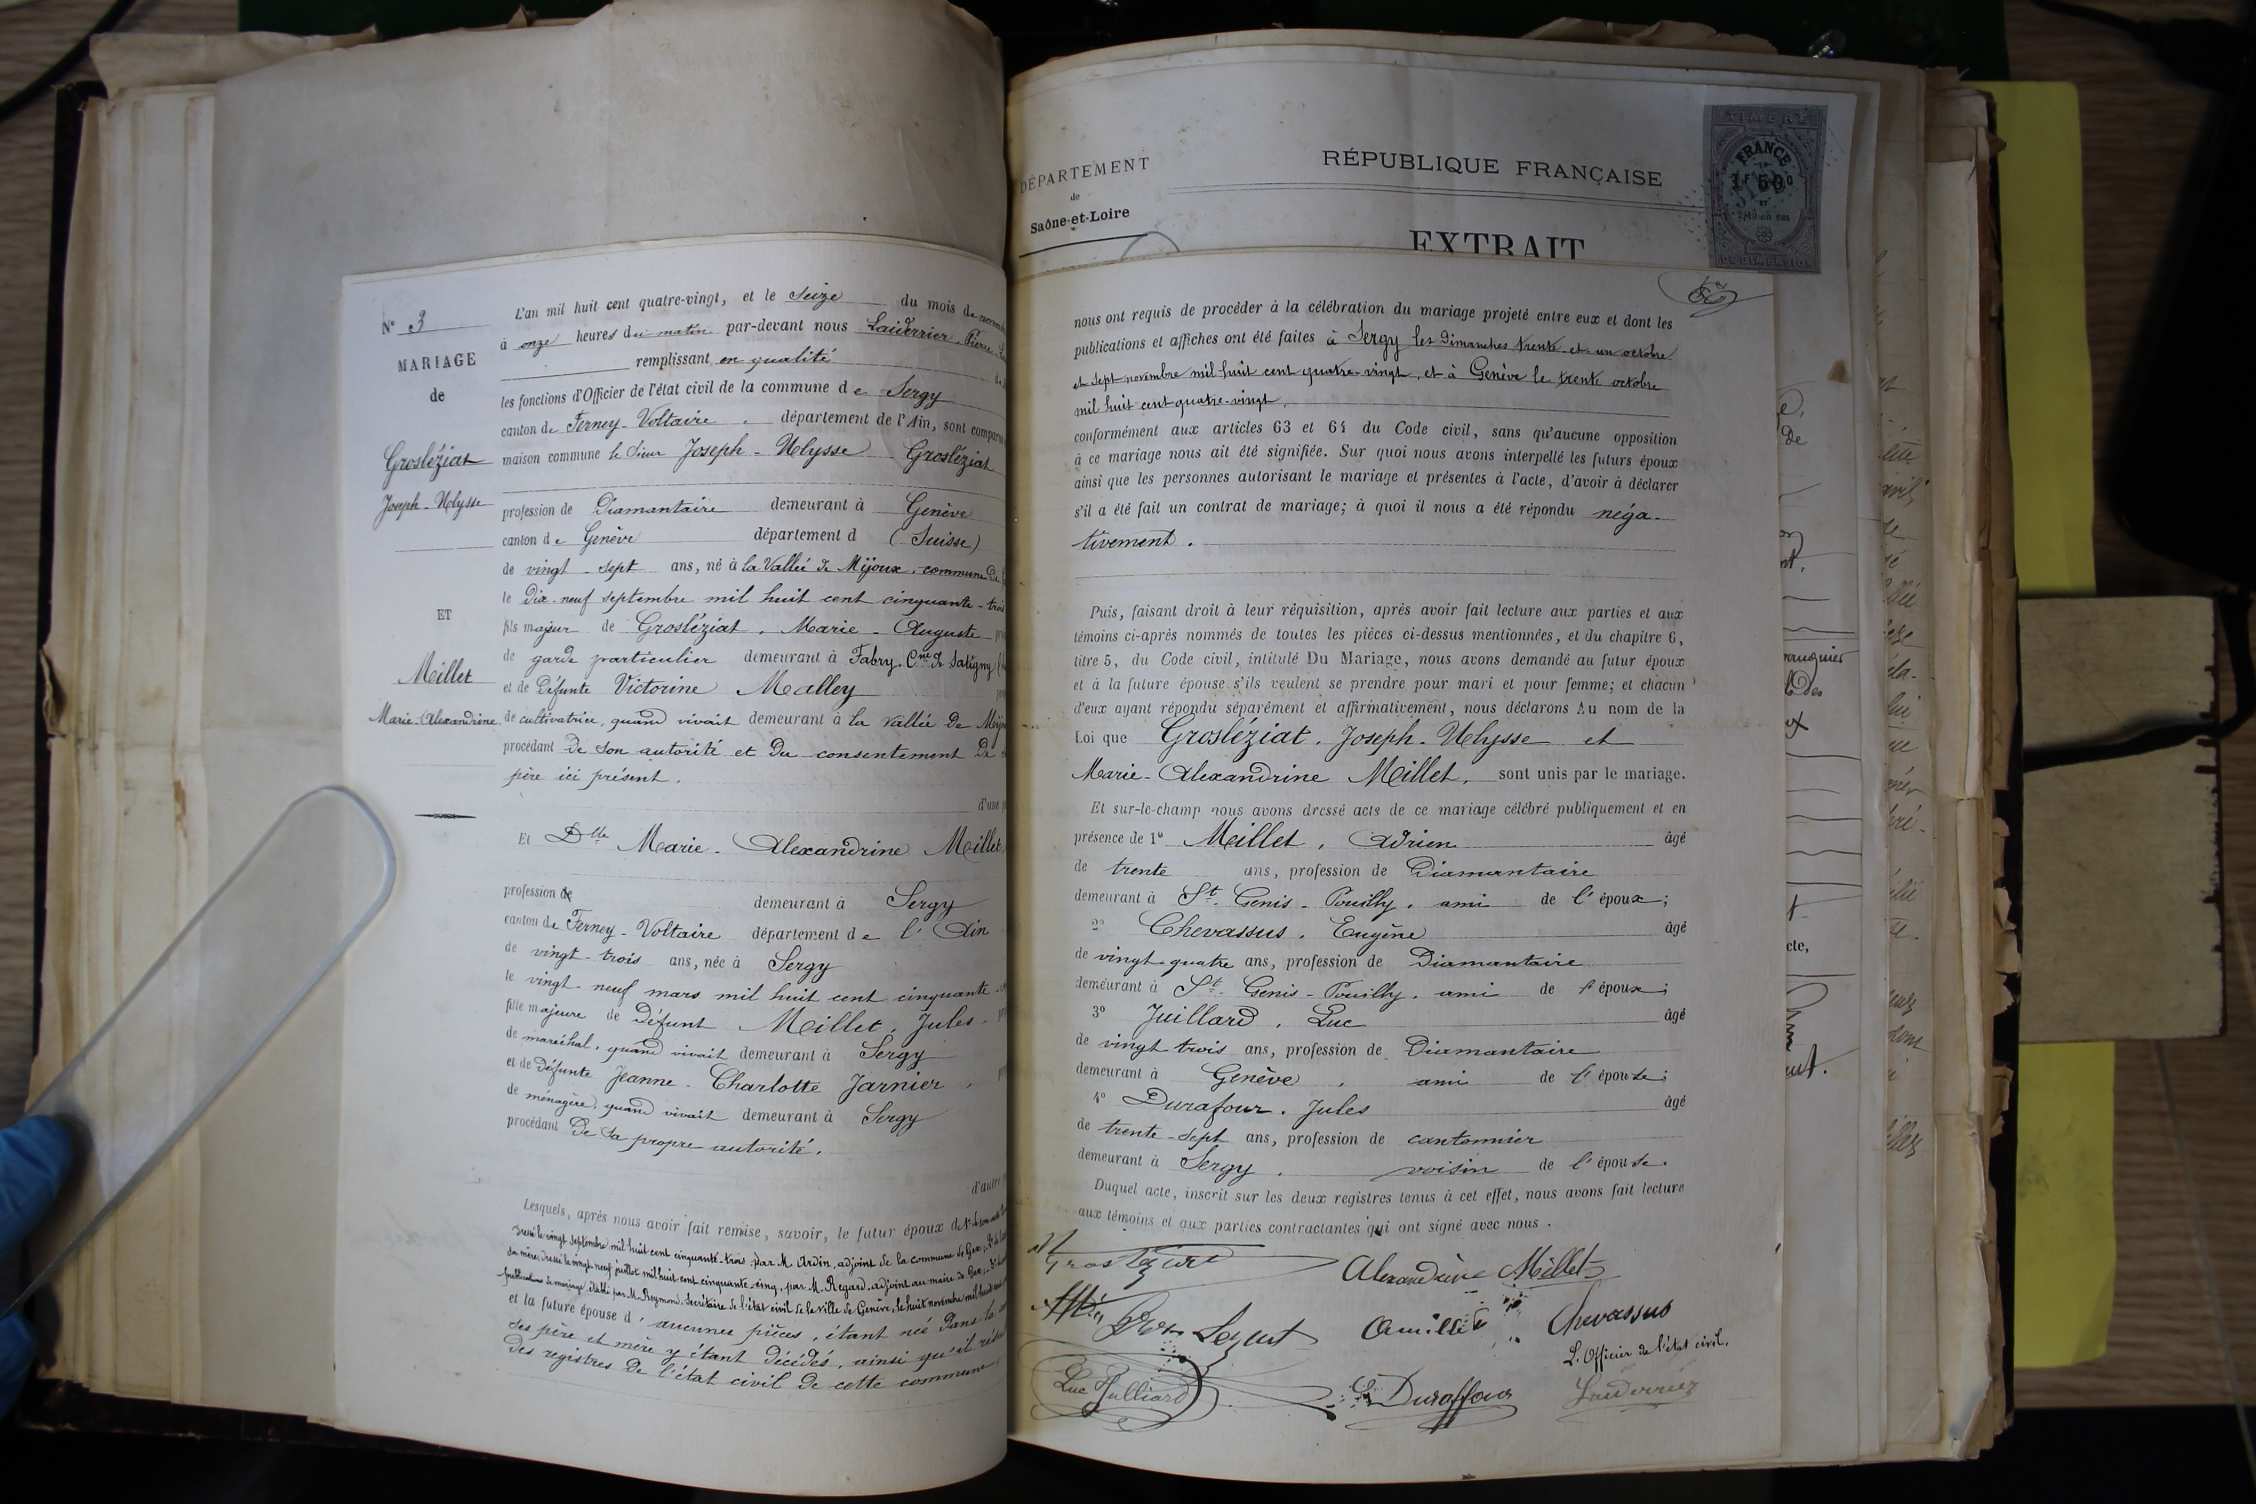 N° 3
MARIAGE
de
Grosléziat
Joseph-Ulysse
ET
Meillet
Marie-Alexandrine
L'an mil huit cent quatre-vingt, et le seize du mois de
à onze heures du matin par-devant nous Laiderrier, Pierre
remplissant en qualité
les fonctions d'Officier de l'état civil de la commune de Sergy
canton de Ferney-Voltaire, département de l'Ain, sont
maison commune le sieur Joseph-Ulysse Grosléziat
profession de Diamantaire demeurant à Genève
canton de Genève département d (Suisse)
de vingt-sept ans, né à la Vallée de Mijoux, commune de
le dix-neuf septembre mil huit cent cinquante-trois
fils majeur de Grosléziat, Marie-Auguste
de garde particulier demeurant à Fabry, Cne de Satigny
et de défunte Victorine Malley
de cultivatrice, quand vivait demeurant à la vallée de
procédant de son autorité et du consentement de
père ici présent.
d'une
Et Dlle Marie-Alexandrine Meillet
profession de demeurant à Sergy
canton de Ferney-Voltaire département de l'Ain
de vingt-trois ans, née à Sergy
le vingt neuf mars mil huit cent cinquante
fille majeure de défunt Meillet, Jules,
de maréchal, quand vivait demeurant à Sergy
et de défunte Jeanne-Charlotte Jarnier,
de ménagère, quand vivait demeurant à Sergy
procédant de sa propre autorité.
d'autre
Lesquels, après nous avoir fait remise, savoir, le futur époux de 1°
dressé le vingt septembre mil huit cent cinquante-trois par M. Ardin, adjoint de la commune de Gex;
sa mère, dressé le vingt neuf juillet mil huit cent cinquante cinq, par M. Regard, adjoint au maire de Gex;
publications de mariage, établi par M. Reymond, secrétaire de l'état civil de la ville de Genève, le huit novembre mil huit
et la future épouse d'aucunes pièces, étant née dans la
ses père et mère y étant décédés, ainsi qu'il
des registres de l'état civil de cette commune
DÉPARTEMENT
de
Saône-et-Loire
RÉPUBLIQUE FRANÇAISE
EXTRAIT
TIMBRE
FRANCE
1F 50
nous ont requis de procéder à la célébration du mariage projeté entre eux et dont les
publications et affiches ont été faites à Sergy les dimanches trente-et-un octobre
et sept novembre mil huit cent quatre-vingt, et à Genève le trente octobre
mil huit cent quatre-vingt,
conformément aux articles 63 et 64 du Code civil, sans qu'aucune opposition
à ce mariage nous ait été signifiée. Sur quoi nous avons interpellé les futurs époux
ainsi que les personnes autorisant le mariage et présentes à l'acte, d'avoir à déclarer
s'il a été fait un contrat de mariage; à quoi il nous a été répondu néga-
tivement.
Puis, faisant droit à leur réquisition, après avoir fait lecture aux parties et aux
témoins ci-après nommés de toutes les pièces ci-dessus mentionnées, et du chapitre 6,
titre 5, du Code civil, intitulé Du Mariage, nous avons demandé au futur époux
et à la future épouse s'ils veulent se prendre pour mari et pour femme; et chacun
d'eux ayant répondu séparément et affirmativement, nous déclarons Au nom de la
Loi que Grosléziat, Joseph-Ulysse et
Marie-Alexandrine Meillet, sont unis par le mariage.
Et sur-le-champ nous avons dressé acte de ce mariage célébré publiquement et en
présence de 1° Meillet, Adrien âgé
de trente ans, profession de Diamantaire
demeurant à St-Genis-Pouilly, ami de l'époux;
2° Chevassus, Eugène âgé
de vingt-quatre ans, profession de Diamantaire
demeurant à St-Genis-Pouilly, ami de l'époux;
3° Juillard, Luc âgé
de vingt trois ans, profession de Diamantaire
demeurant à Genève, ami de l'épouse;
4° Durafour, Jules âgé
de trente-sept ans, profession de cantonnier
demeurant à Sergy, voisin de l'épouse.
Duquel acte, inscrit sur les deux registres tenus à cet effet, nous avons fait lecture
aux témoins et aux parties contractantes qui ont signé avec nous.
Alexandrine Meillet
Chevassus
L'Officier de l'état civil.
Luc Julliard
Duraffour
Laiderrier